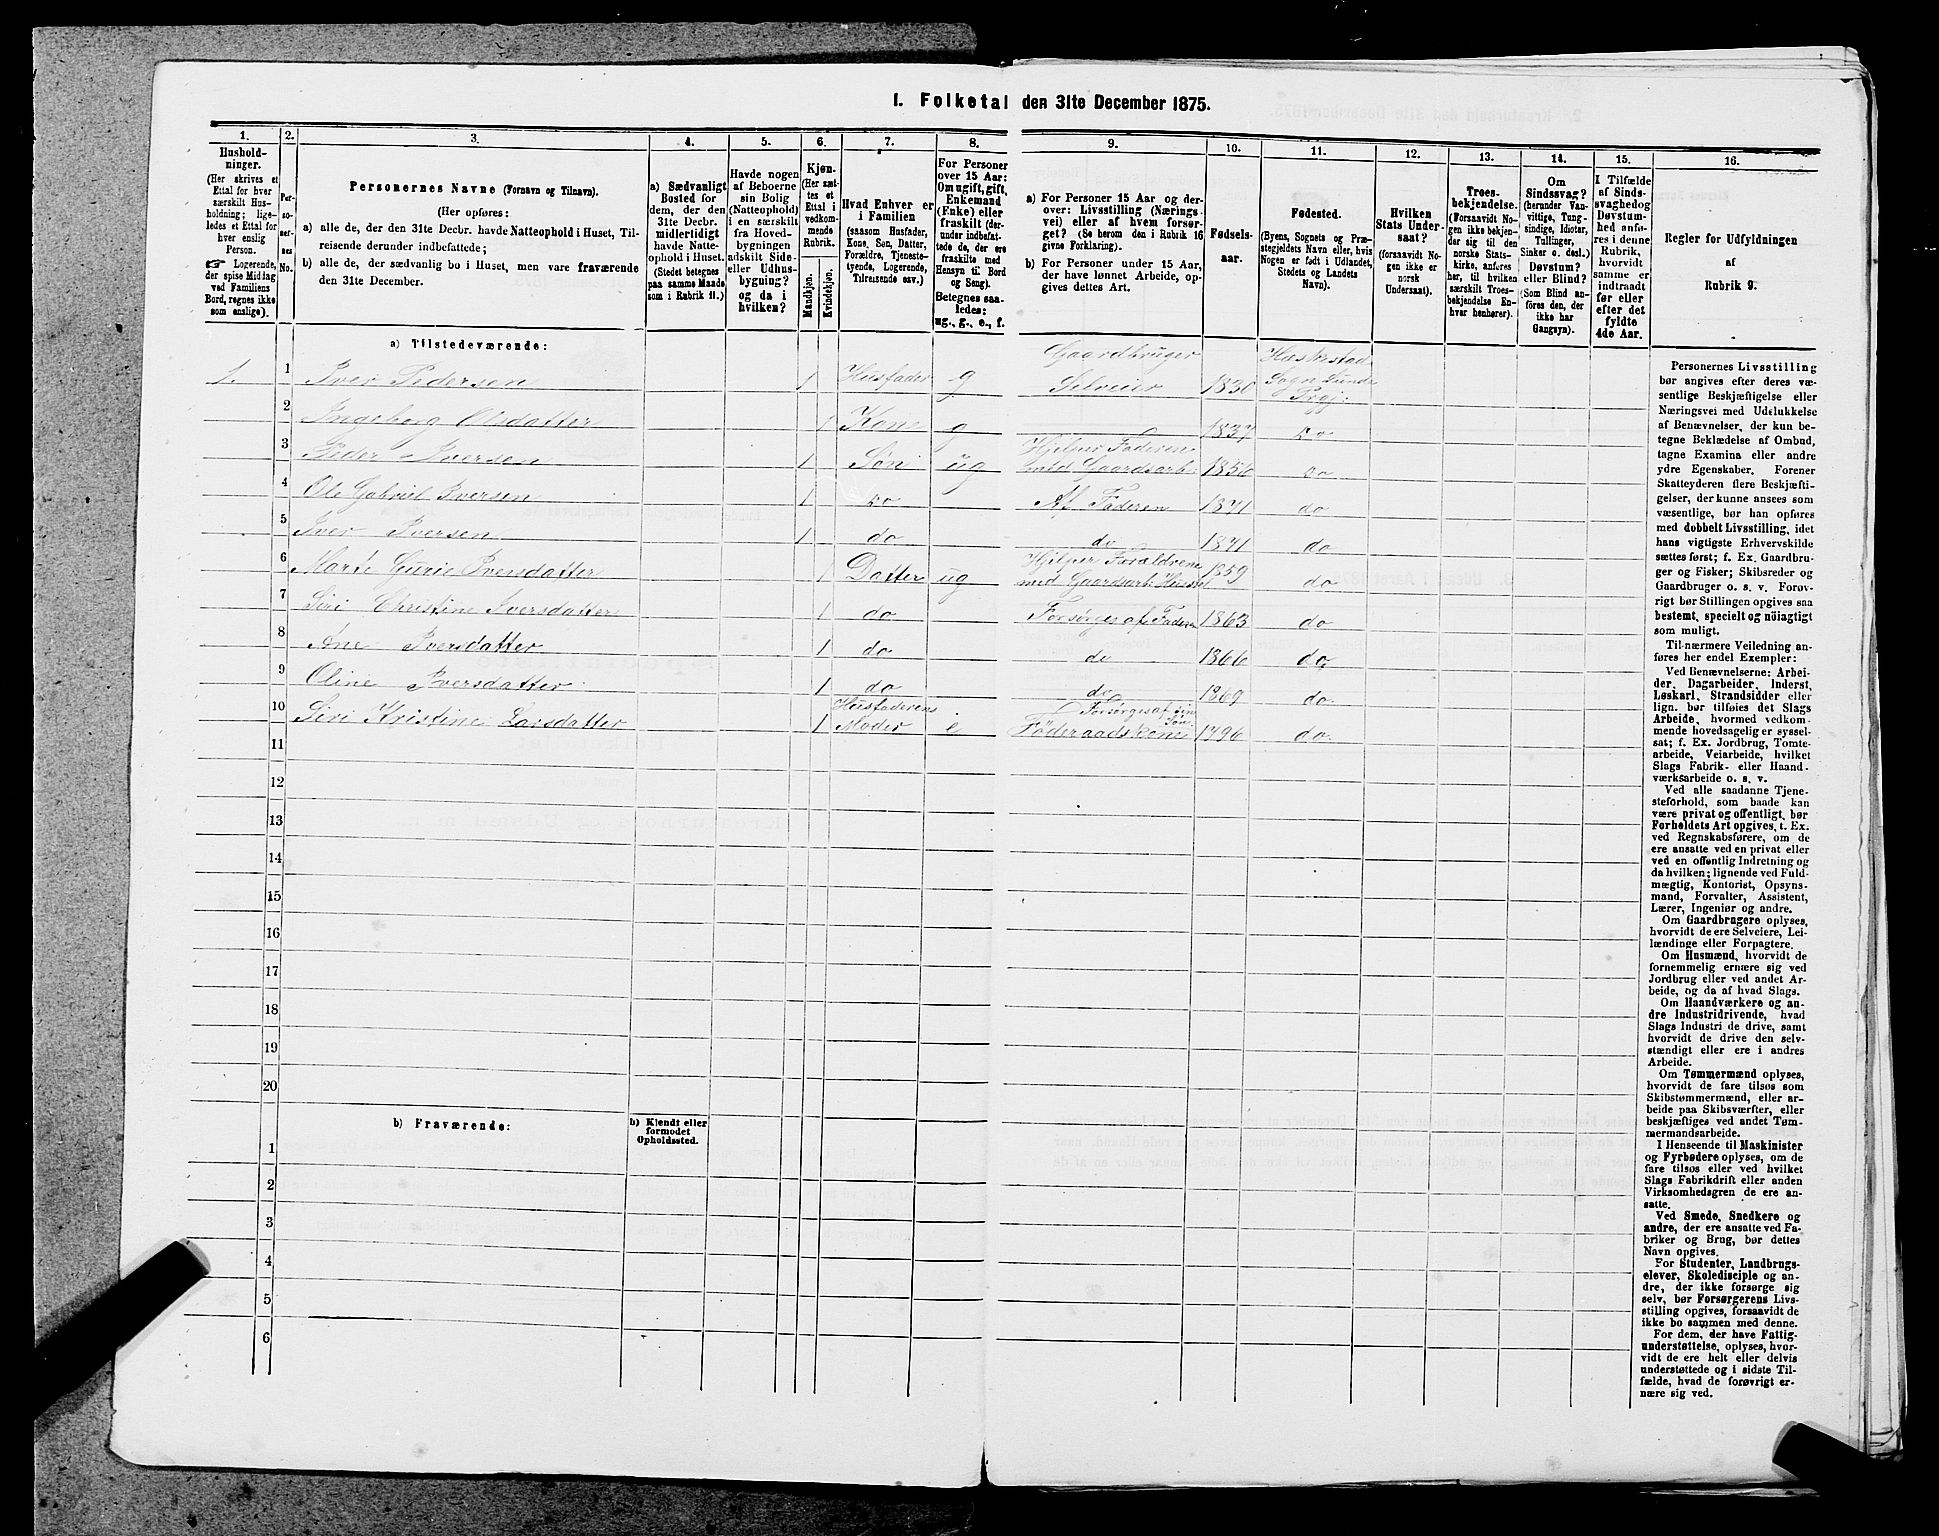 1. Folketal den 31te December 1875.
1. 2. 3. 4. 5. 6. 7. 8. 9. 10. 11. 12. 13. 14. 15. 16.
Hushold-
ninger.
(Her skrives et
Ettal for hver
særskilt Hus-
holdning; lige-
ledes et Ettal for
hver enslig
Person.
☞ Logerende,
der spise Middag
ved Familiens
Bord, regnes ikke
som enslige).
Per-
so-
ner-
nes
No.
Personernes Navne (Fornavn og Tilnavn).
(Her opføres:
a) alle de, der den 31te Decbr. havde Natteophold i Huset, Til-
reisende derunder indbefattede;
b) alle de, der sædvanlig bo i Huset, men vare fraværende
den 31te December.
a) Sædvanligt
Bosted for
dem, der den
31te Decbr.
midlertidigt
havde Natte-
ophold i Huset.
(Stedet betegnes
paa samme Maade
som i Rubrik 11.)
Havde nogen
af Beboerne
sin Bolig
(Natteophold)
i en særskilt
fra Hoved-
bygningen
adskilt Side-
eller Udhus-
bygning?
og da i
hvilken?
Kjøn.
(Her sæt-
tes et
Ettal i
vedkom-
mende
Rubrik.
Mandkjøn.
Kvindekjøn.
Hvad Enhver er
i Familien
(saasom Husfader,
Kone, Søn, Datter,
Forældre, Tjeneste-
tyende, Logerende,
Tilreisende osv.)
For Personer
over 15 Aar:
Om ugift, gift,
Enkemand
(Enke) eller
fraskilt (der-
under indbefat-
tede de, der ere
fraskilte med
Hensyn til Bord
og Seng).
Betegnes saa-
ledes:
ug., g., e., f.
a) For Personer 15 Aar og der-
over: Livsstilling (Nærings-
vei) eller af hvem forsør-
get? (Se herom den i Rubrik 16
givne Forklaring).
b) For Personer under 15 Aar,
der have lønnet Arbeide, op-
gives dettes Art.
Fødsels-
aar.
Fødested.
(Byens, Sognets og Præ-
stegjeldets Navn eller, hvis
Nogen er født i Udlandet,
Stedets og Landets
Navn).
Hvilken
Stats Under-
saat?
(forsaavidt No-
gen ikke er
norsk
Undersaat).
Troes-
bekjendelse.
(Forsaavidt No-
gen ikke bekjen-
der sig til den
norske Stats-
kirke, anføres
her, til hvilken
særskilt Troes-
bekjendelse En-
hver henhører).
Om
Sindssvag?
(herunder Van-
vittige, Tung-
sindige, Idioter,
Tullinger,
Sinker o. desl.)
Døvstum?
eller Blind?
(Som Blind an-
føres den, der
ikke har
Gangsyn).
I Tilfælde
af Sinds-
svaghed og
Døvstum-
hed anfø-
res i denne
Rubrik,
hvorvidt
samme er
indtraadt
før eller
efter det
fyldte
4de Aar.
Regler for Udfyldningen
af
Rubrik 9.
a) Tilstedeværende:
1. 1 Iver Pedersen 1 Husfader g Gaardbruger Selveier 1830 Hæskestad Sogn Lunde Prgj.
2 Ingeborg Olsdatter 1 Kone g 1837 do
3 Peder Iversen 1 Søn ug Hjelper Faderen med Gaardsarb: 1856 do
4 Ole Gabriel Iversen 1 do Af Faderen 1871 do
5 Iver Iversen 1 do do 1871 do
6 Marte Gurie Iversdatter 1 Datter ug Hjelper Forældrene med Gaardsarb. 1859 do
7 Siri Christine Iversdatter 1 do Forsørges af Faderen 1863 do
8 Ane Iversdatter 1 do do 1866 do
9 Oline Iversdatter 1 do do 1869 do
10 Siri Kristine Larsdatter 1 Husfaderens Moder e Forsørges af sin Søn Föderaadskone 1796 do.
11
12
13
14
15
16
17
18
19
20
b) Fraværende:
b) Kjendt eller
formodet
Opholdssted.
1
2
3
4
5
6
Personernes Livsstilling
bør angives efter deres væ-
sentlige Beskjæftigelse eller
Næringsvei med Udelukkelse
af Benævnelser, der kun be-
tegne Beklædelse af Ombud,
tagne Examina eller andre
ydre Egenskaber. Forener
Skatteyderen flere Beskjæfti-
gelser, der kunne ansees som
væsentlige, bør han opføres
med dobbelt Livsstilling, idet
hans vigtigste Erhvervskilde
sættes først; f. Ex. Gaardbru-
ger og Fisker; Skibsreder og
Gaardbruger o. s. v. Forøv-
rigt bør Stillingen opgives saa
bestemt, specielt og nöiagtigt
som muligt.
Til nærmere Veiledning an-
føres her endel Exempler:
Ved Benævnelserne: Arbei-
der, Dagarbeider, Inderst,
Løskarl, Strandsidder eller
lign. bør tilføies det Slags
Arbeide, hvormed vedkom-
mende hovedsagelig er syssel-
sat; f. Ex. Jordbrug, Tomte-
arbeide, Veiarbeide, hvilket
Slags Fabrik- eller Haand-
værksarbeide o. s. v.
Ved alle saadanne Tjene-
steforhold, som baade kan
være privat og offentligt, bør
Forholdets Art opgives, t. Ex.
ved Regnskabsførere, om de
ere ansatte ved en privat eller
ved en offentlig Indretning og
da hvilken; lignende ved Fuld-
mægtig, Kontorist, Opsyns-
mand, Forvalter, Assistent,
Lærer, Ingeniør og andre.
Om Gaardbrugere oplyses,
hvorvidt de ere Selveiere, Lei-
lændinge eller Forpagtere.
Om Husmænd, hvorvidt de
fornemmelig ernære sig ved
Jordbrug eller ved andet Ar-
beide, og da af hvad Slags.
Om Haandværkere og an-
dre Industridrivende, hvad
Slags Industri de drive, samt
hvorvidt de drive den selv-
stændigt eller ere i andres
Arbeide.
Om Tømmermænd oplyses,
hvorvidt de fare tilsøs som
Skibstømmermænd, eller ar-
beide paa Skibsværfter, eller
beskjæftiges ved andet Tøm-
mermandsarbeide.
I Henseende til Maskinister
og Fyrbødere oplyses, om de
fare tilsøs eller ved hvilket
Slags Fabrikdrift eller anden
Virksomhedsgren de ere an-
satte.
Ved Smede, Snedkere og
andre, der ere ansatte ved Fa-
briker og Brug, bør dettes
Navn opgives.
For Studenter, Landbrugs-
elever, Skoledisciple og an-
dre, der ikke forsørge sig
selv, bør Forsørgerens Livs-
stilling opgives, forsaavidt de
ikke bo sammen med denne.
For dem, der have Fattig-
understøttelse, oplyses, hvor-
vidt de ere helt eller delvis
understøttede og i sidste Til-
fælde, hvad de forøvrigt er-
nære sig ved.